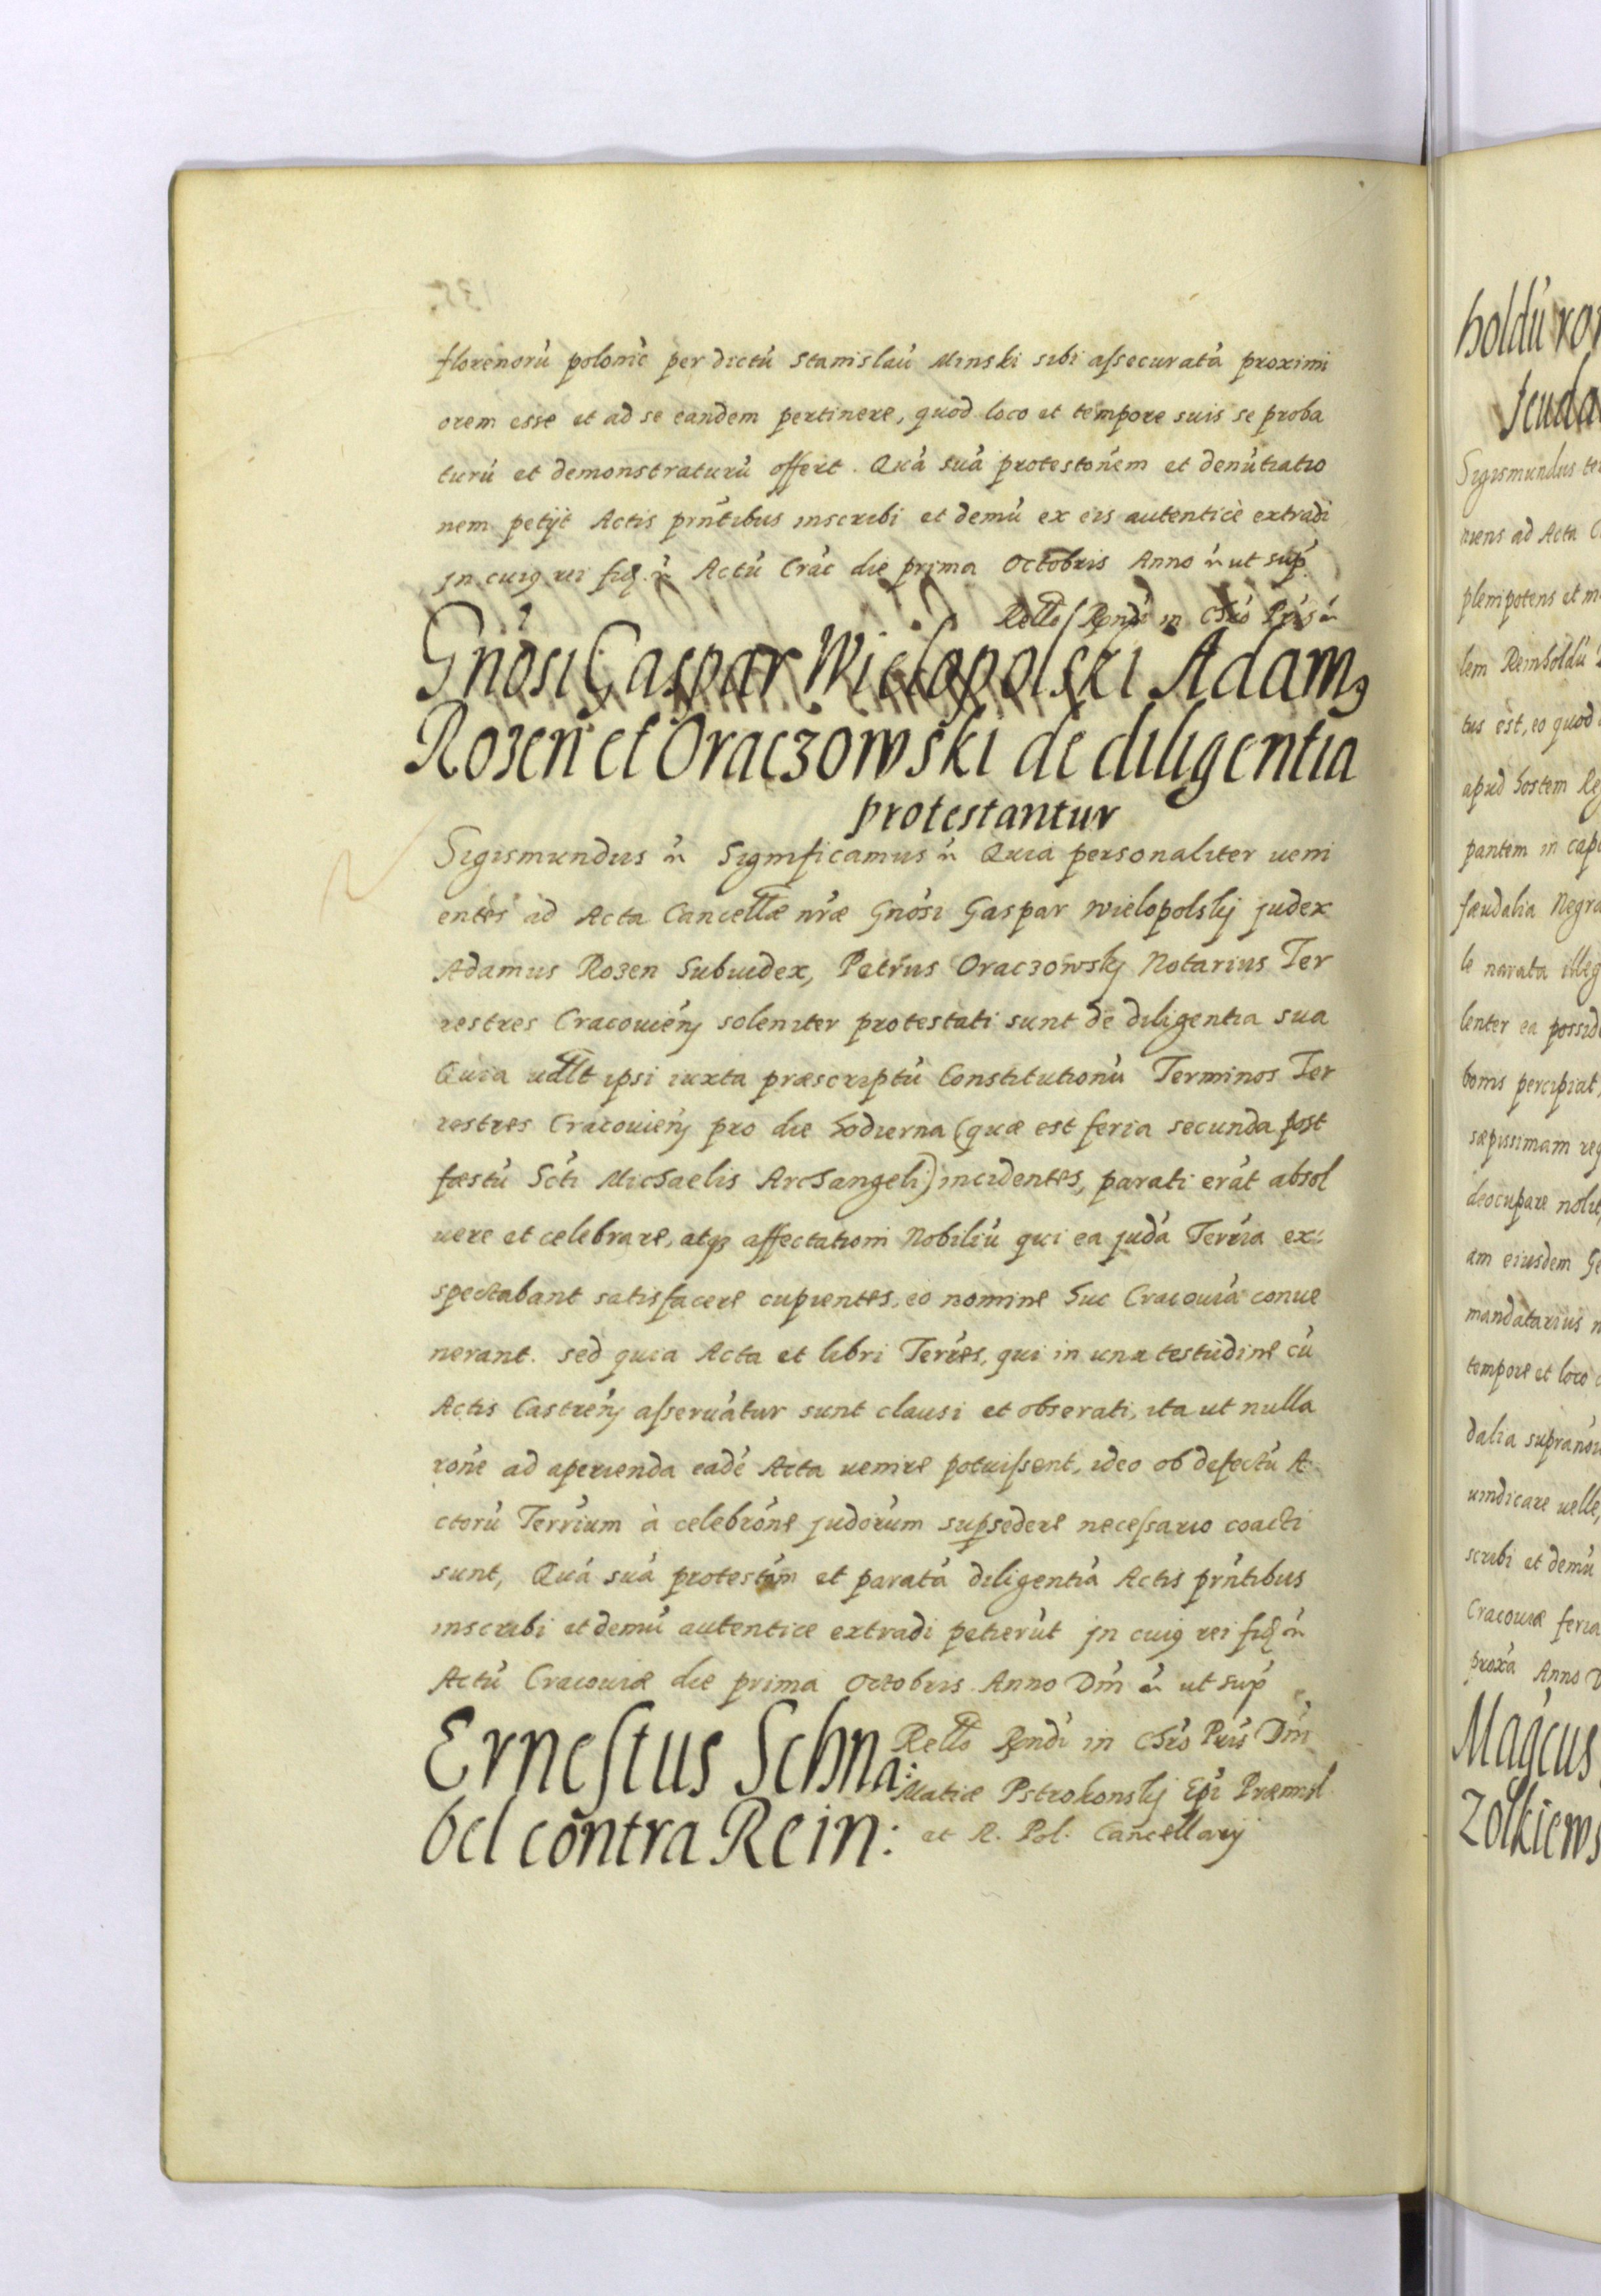 florenorũ polonic̃ per dictũ Stanislaũ Minski sibi assecuratã proximi
orem esse et ad se eandem pertinere, quod loco et tempore suis se proba
turũ et demonstraturũ offert. Quã suã protestoñem et denũtiatio
nem petijt Actis prñtibus inscribi et demũ ex eis autenticè extradi
jn cuiꝰ rei fid. Actũ Crac̃ die prima Octobris Anno ut sup̃
Rello Rñdi in Chro Pris
Gnosi Gaspar Wielopolski Adamꝰ
Rozen et Oraczowski de diligentia
protestantur
Sigismundus Significamus Quia personaliter veni
entes ad Acta Cancellæ nr̃æ Gnõsi Gaspar Wielopolskj judex
Adamus Rozen Subiudex, Petrus Oraczowskj Notarius Ter
restres Cracovień soleniter protestati sunt de diligentia sua
Quia iuxta præscriptũ Constitutionũ Terminos Ter
restres Cracovień pro die hodierna (quæ est feria secunda post
fæstũ Scti Michaelis Archangeli) incidentes, parati erãt absol
vere et celebrare, atqꝫ affectationi Nobiliũ qui ea judã Terrĩa ex:
spectabant satisfacere cupientes, eo nomine huc Cracoviã conve
nerant. sed quia Acta et libri Terr̃es, qui in una testudine cũ
Actis Castreñ asservãtur sunt clausi et obserati, ita ut nulla
roñe ad aperienda eadẽ Acta venire potuissent, ideo ob defectũ A
ctorũ Terrium à celebrõne judõrum supsedere necessario coacti
sunt, Quã suã protestãm et paratã diligentiã Actis prñtibus
inscribi et demũ autentice extradi petierũt jn cuiꝰ rei fid
Actũ Cracoviæ die prima Octobris Anno Dñi ut sup̃
Ernestus Schna:
bel contra Rein:
Rello Rñdi in Chrõ Pris Dñi
Matiæ Pstrokonskj Epĩ Præmisl
et R. Pol. Cancellarij
holdũ
feuda
Sigismundus
niens ad Acta
plenipotens et
lem Reinholdũ
tus est, eo quod
apud hostem
pantem in
fæudalia
le narata
lenter ea
bonis percipiat
sæpissimam
deocupare
am eiusdem
mandatarius
tempore et loco
dalia
vindicare velle,
scribi et demũ
Cracoviæ feria
prox̃a Anno
Mag̃cus
Zolkiews